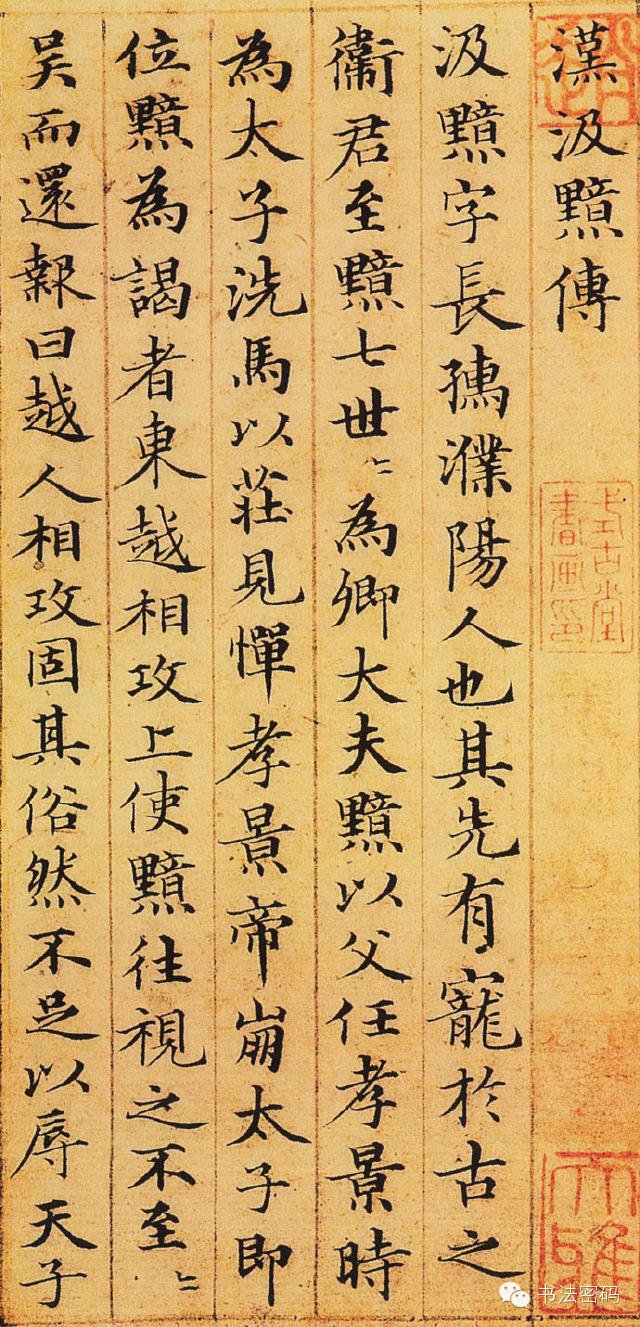 漢汲黯傳
汲黯字長孺濮陽人也其先有寵於古之
衛君至黯七世〻為卿大夫黯以父任孝景時
為太子洗馬以莊見憚孝景帝崩太子即
位黯為謁者東越相攻上使黯往視之不至〻
吴而還報曰越人相攻固其俗然不足以辱天子
式古堂
書画印
大雅
书法密码